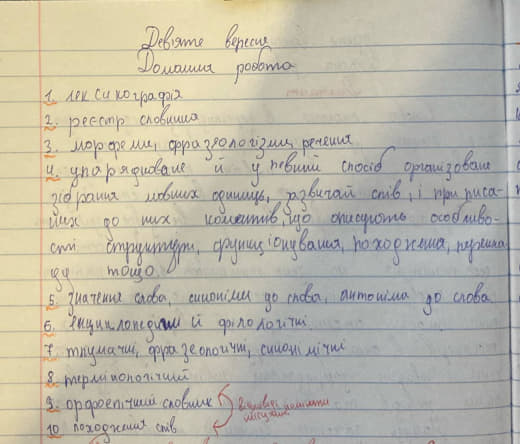 Дев'яте вересня
Домашня робота
1. лексикографія
2. реєстр словника
3. морфеми, фразеологізми, речення
4. упорядковане й у певний спосіб організоване
зібрання мовних одиниць, зазвичай слів, і приписа-
них до них коментів, що описують особливо-
сті структури, функціонування, походження, перекла-
ду тощо.
5. значення слова, синоніми до слова, антоніма до слова
6. енциклопедичні й філологічні.
7. тлумачні, фразеологічні, синонімічні
8. термінологічний
9. орфоепічний словник
відповіді поміняти
місцями
10 походження слів